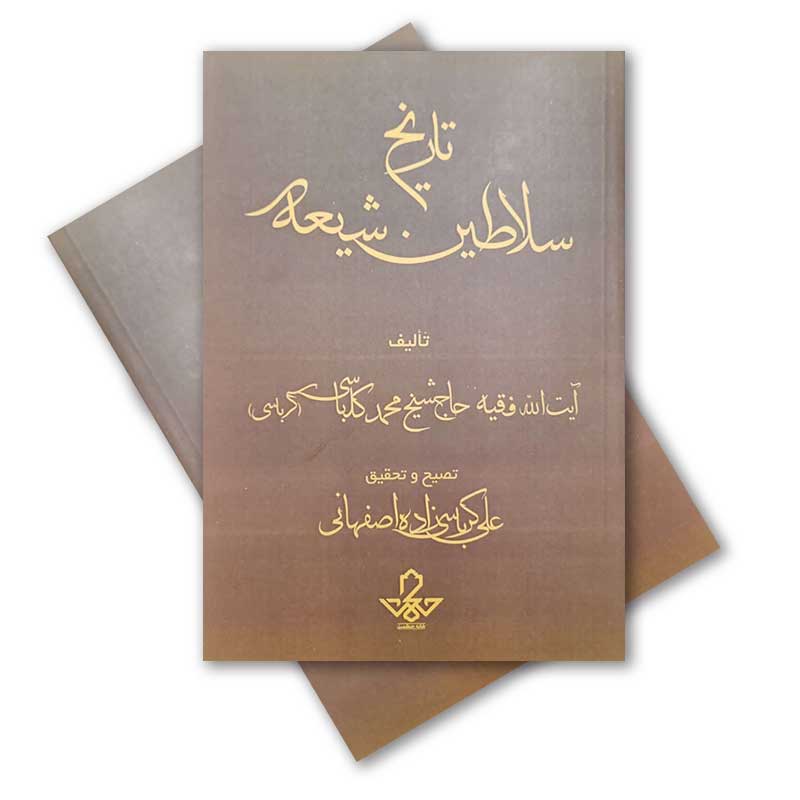 تاریخ
سلاطین شیعه
تألیف
آیت الله فقیه حاج شیخ محمد کلباسی (کرباسی)
تصیح و تحقیق
علی کرباسی زاده اصفهانی
خانه حکمت